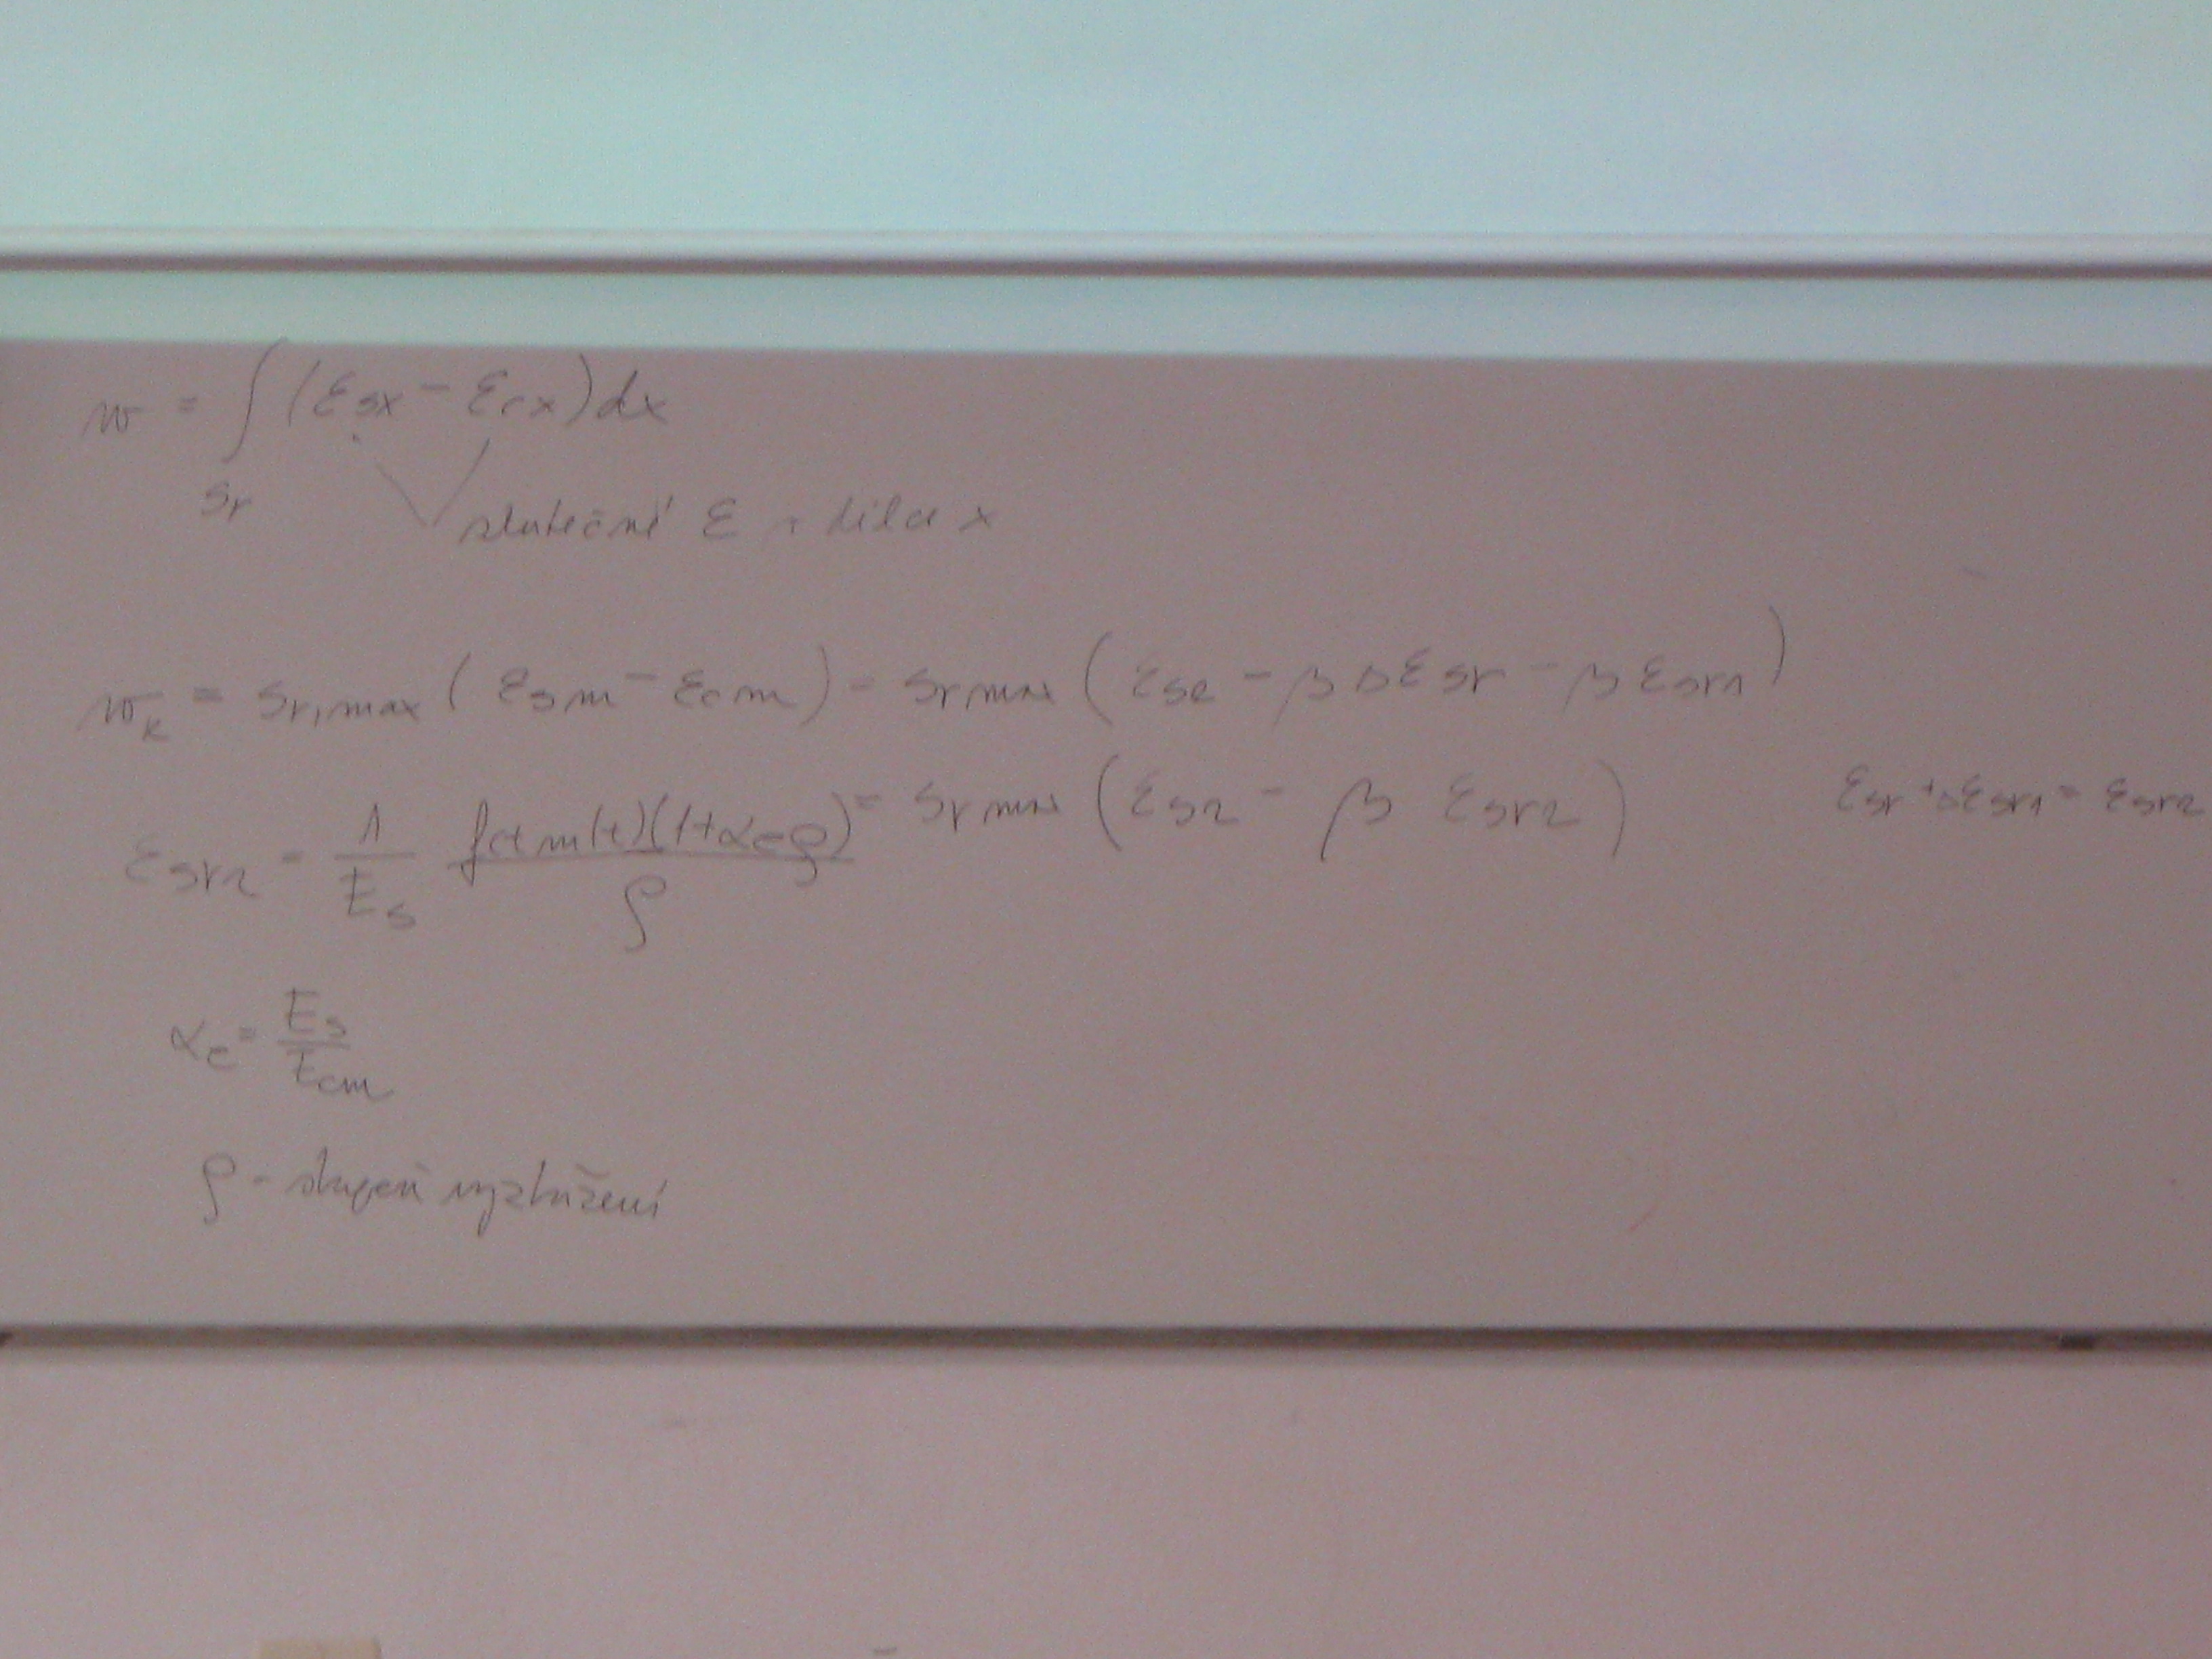 w = ∫ (εsx − εcx) dx
sr
skutečné ε v délce x
wk = sr,max (εsm − εcm) = sr max (εs2 − β Δεsr − β εsr1)
= sr max (εs2 − β εsr2)
εsr + Δεsr1 = εsr2
εsr2 = 1/Es fctm(t)(1+αeρ)/ρ
αe = Es/Ecm
ρ - stupeň vyztužení